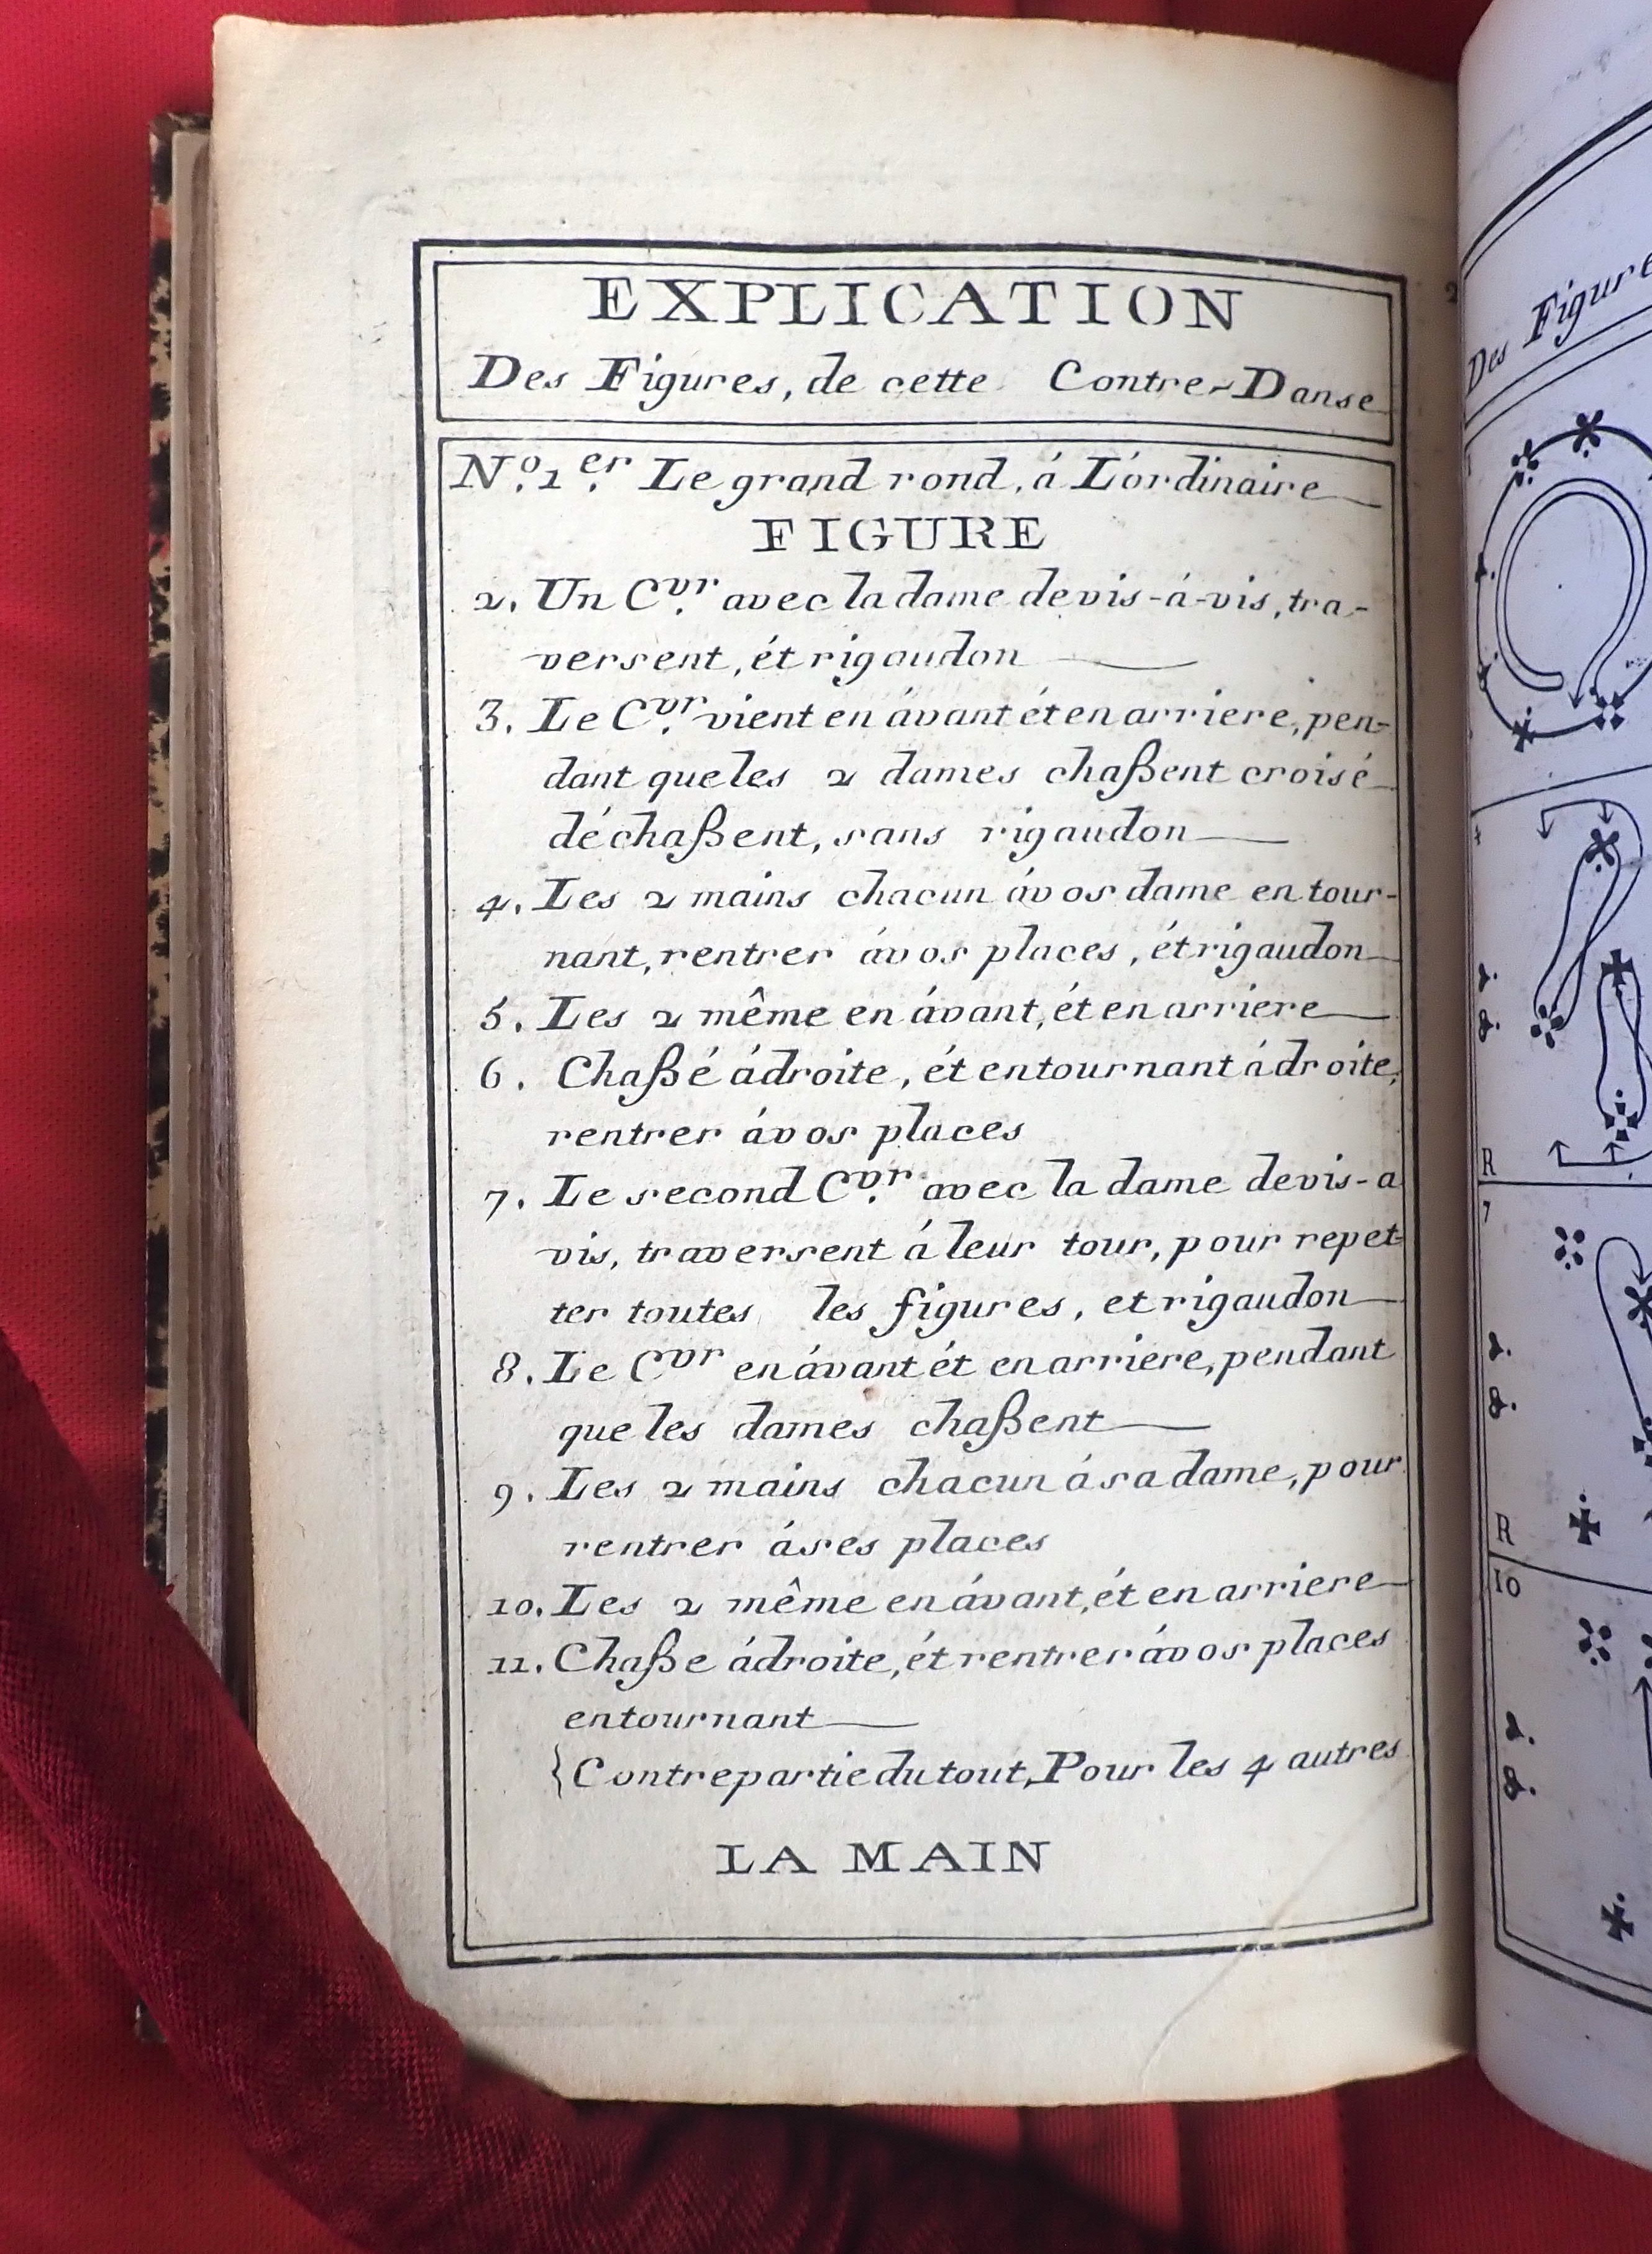 EXPLICATION
Des Figures, de cette Contre-Danse
N.º 1.er Le grand rond, á L'ordinaire
FIGURE
2. Un C.vr avec la dame de vis-á-vis, tra-
versent, ét rigaudon
3. Le C.vr vient en ávant ét en arriere, pen-
dant que les 2 dames chaßent croisé
déchaßent, sans rigaudon
4. Les 2 mains chacun á vos dame en tour-
nant, rentrer á vos places, ét rigaudon
5. Les 2 même en ávant, ét en arriere
6. Chaßé á droite, ét en tournant á droite,
rentrer á vos places
7. Le second C.vr avec la dame de vis-a
vis, traversent á leur tour, pour repet-
ter toutes les figures, et rigaudon
8. Le C.vr en ávant ét en arriere, pendant
que les dames chaßent
9. Les 2 mains chacun á sa dame, pour
rentrer á ses places
10. Les 2 même en ávant, ét en arriere
11. Chaße á droite, ét rentrer á vos places
en tournant
{Contre partie du tout, Pour les 4 autres
LA MAIN
2
Des Figure
1
4
R
7
R
10